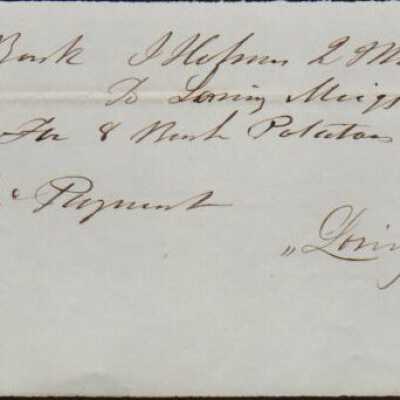 Bark J Hofman 2 M
To Loring Meigs
For 8 Bush Potatoes
Payment
" Lorin